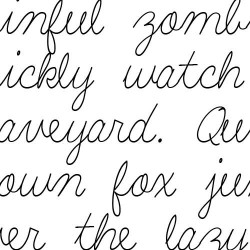 inful zomb
ickly watch
aveyard. Qu
own fox ju
er the lazy